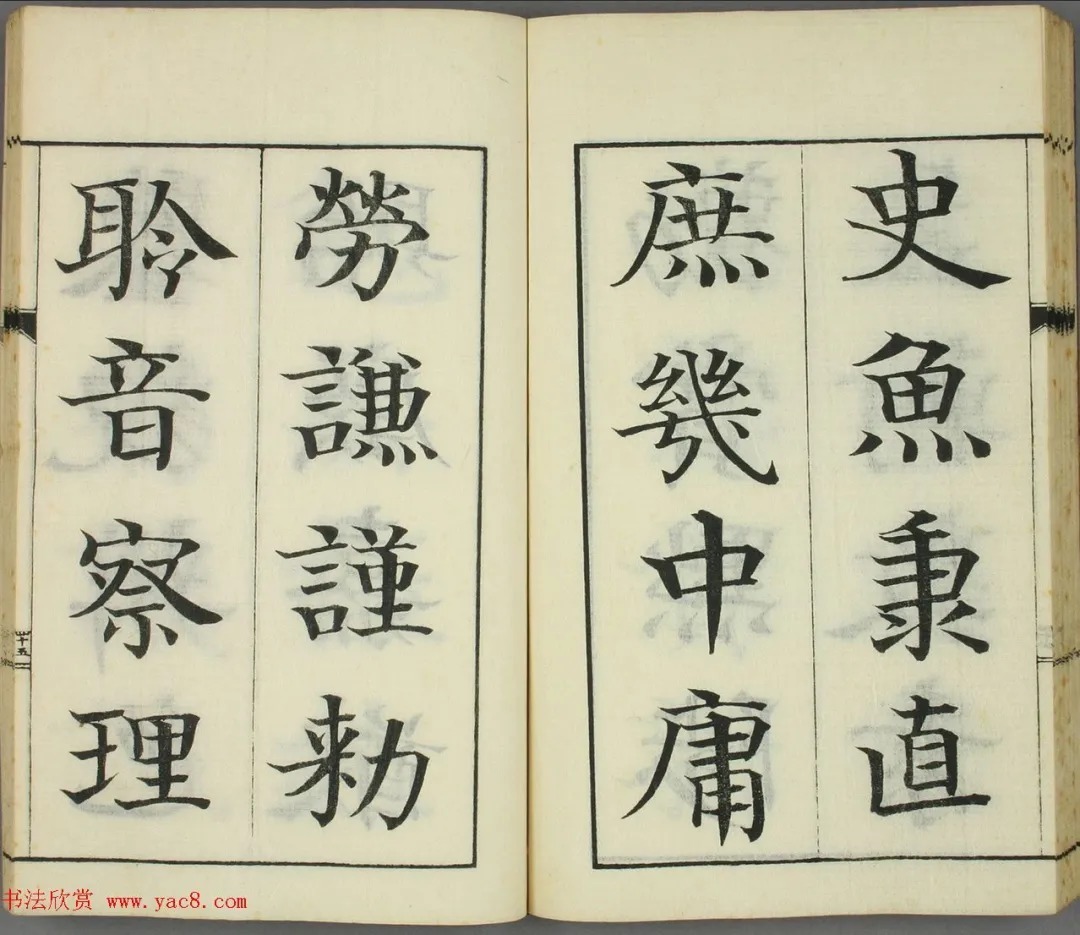 史魚秉直
庶幾中庸
勞謙謹勑
聆音察理
十五
书法欣赏 www.yac8.com